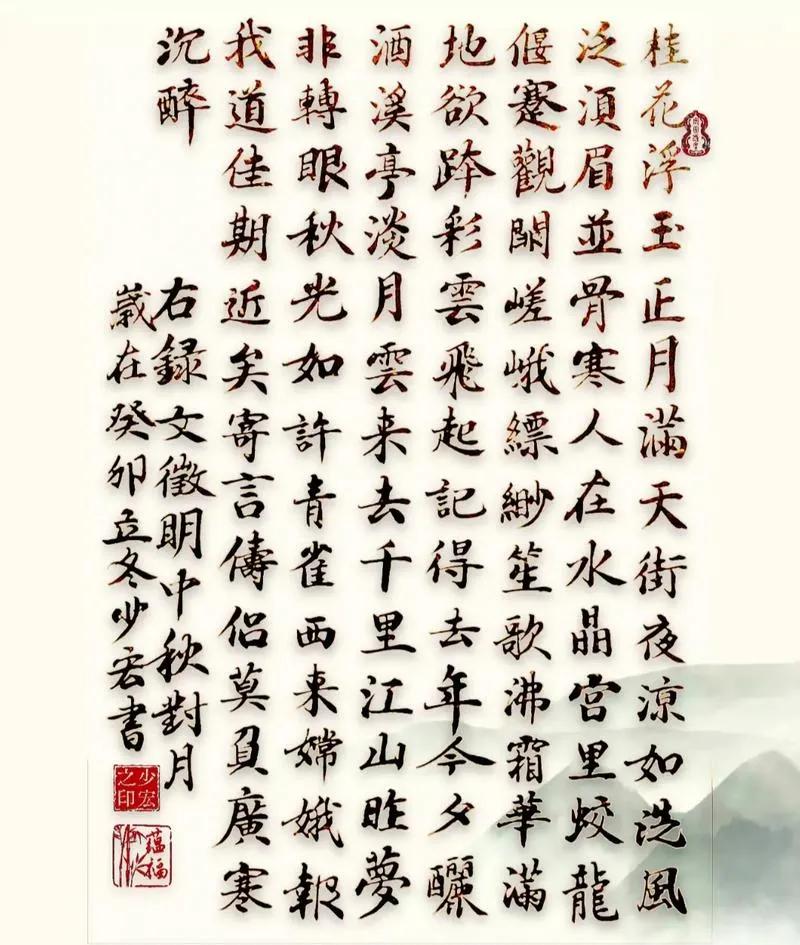 桂花浮玉正月滿天街夜涼如洗風
泛須眉並骨寒人在水晶宮里蛟龍
偃蹇觀闕嵯峨縹緲笙歌沸霜華滿
地欲跨彩雲飛起記得去年今夕釃
酒溪亭淡月雲来去千里江山昨夢
非轉眼秋光如許青雀西来嫦娥報
我道佳期近矣寄言儔侶莫負廣寒
沉醉
右録文徵明中秋對月
歲在癸卯立冬少宏書
少宏之印